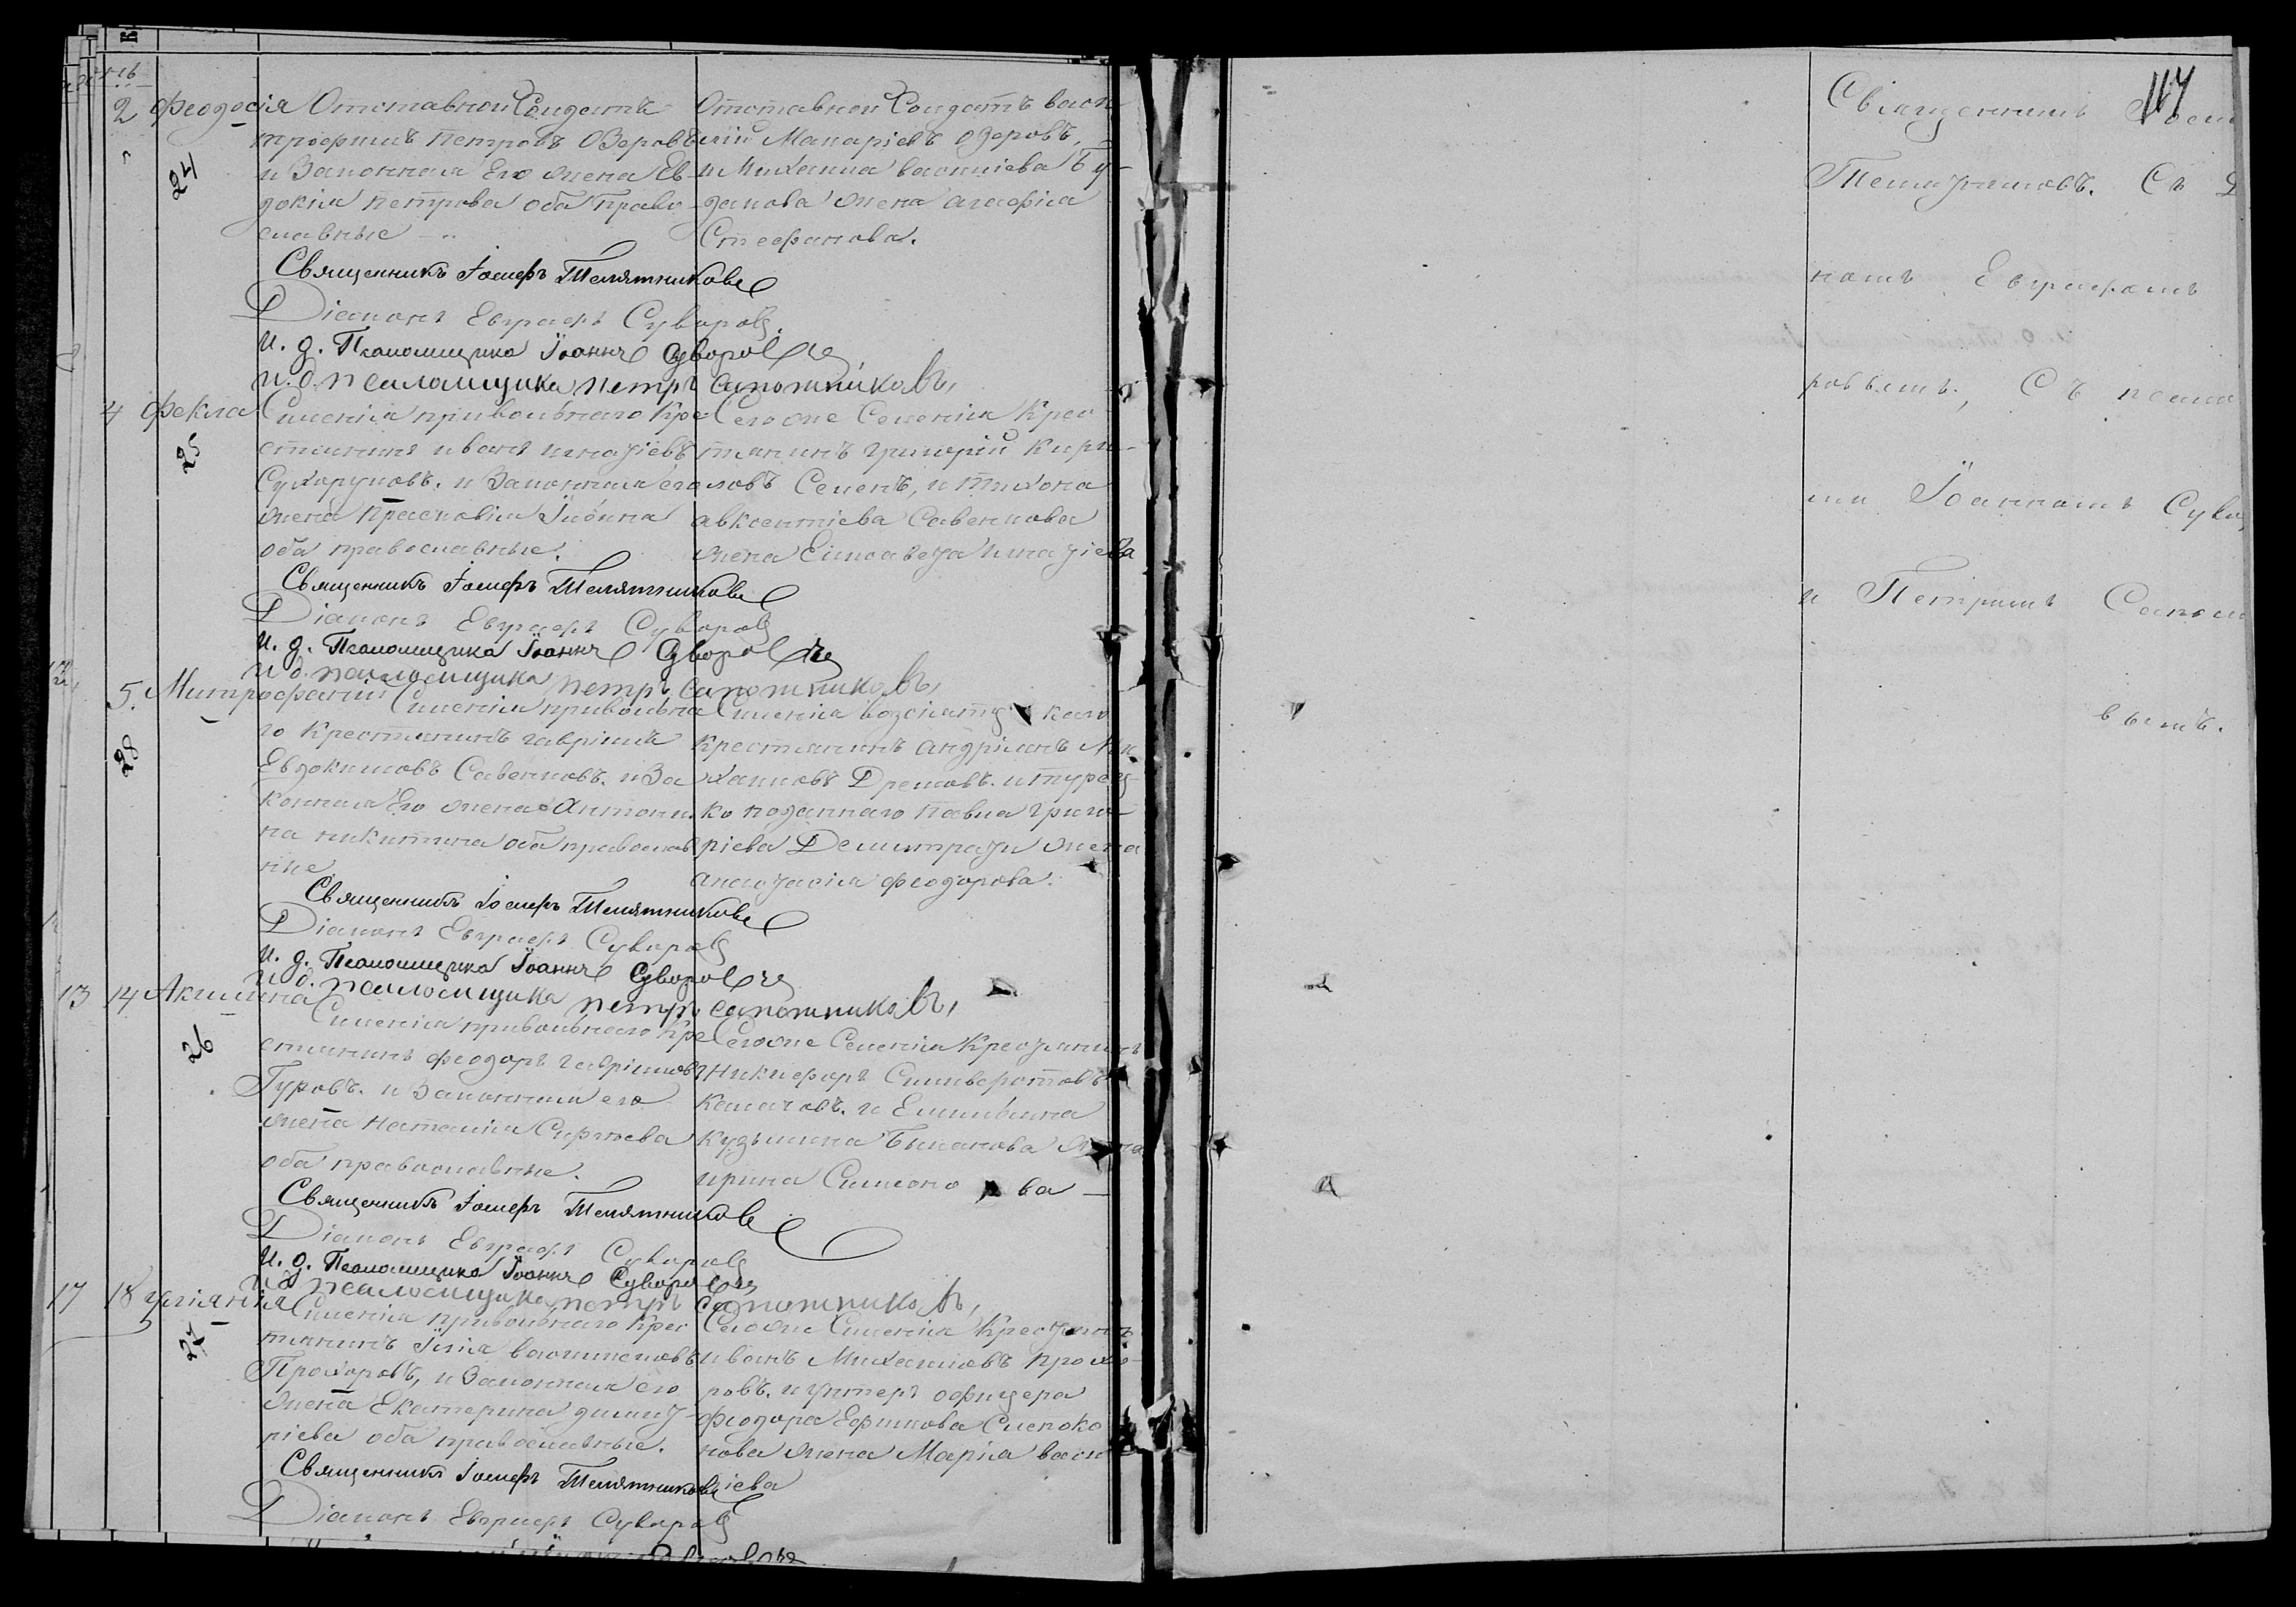 117
2 Феодосія Отставной Солдатъ
Трофимъ Петровъ Озеровъ
24
и Законная Его жена Ев-
докія Петрова оба право-
славные
Отставной Солдатъ Васи
лій Макаріевъ Озеровъ,
и Михаила Василиева Бу-
данова жена Агафіа
Стефанова.
Священникъ Іосифъ Телятниковъ
Діаконъ Евграфъ Суворовъ.
И. д. Псаломщика Іоаннъ Суворовъ
И. д. псаломщика петръ сапожниковъ,
4 Фекла Силенія привольнаго Кре
25
стининъ иванъ игнатіевъ
Сухоруковъ. и Законная его
жена Прасковіа Іліина
оба православные.
Сегоже Селенія Крес-
тианинъ Григорій Кири-
ловъ Семенъ, и тихона
авксентіева Савенкова
жена Елисавета игнатіева
Священникъ Іосифъ Телятниковъ
Діаконъ Евграфъ Суворовъ
И. д. Псаломщика Іоаннъ Суворовъ
И. д. псаломщика петръ сапожниковъ,
5. Митрофаній Силенія привольна
28
го Крестианинъ гавріилъ
Евдокимовъ Савенковъ. и За
конная Его жена Антони
на никитина оба православ
ные
Силенія
Крестианинъ Андріанъ Ми
хаиловъ Дремовъ. и турец-
ко поданнаго Павла Григо-
ріева Демитрази жена
Анастасіа феодорова.
Священникъ Іосифъ Телятниковъ
Діаконъ Евграфъ Суворовъ
И. д. Псаломщика Іоаннъ Суворовъ
И. д. псаломщика петръ сапожниковъ,
13 14 Акилина
26
Силенія привольнаго Кре
стианинъ феодоръ гавріиловъ
Гуровъ. и Законная его
жена Наталіа Сиргіева
оба православные.
Сегоже Селенія Крестианинъ
Никифоръ Селиверстовъ
Калачовъ. и Емилиана
Кузьмина Быканова жена
ирина Симеонова
Священникъ Іосифъ Телятниковъ
Діаконъ Евграфъ Суворовъ
И. д. Псаломщика Іоаннъ Суворовъ
И. д. псаломщика петръ сапожниковъ,
17 18 Иуліанія
27
Силенія привольнаго Крес
тианинъ Іліа
Прохоровъ, и Законная его
жена Екатерина димит-
ріева оба православные.
Сегоже Силенія Крестианинъ
иванъ Михаиловъ Прохо-
ровъ. и унтеръ офицера
феодора Ефимова Слепоко
нова жена Маріа Васи
ліева
Священникъ Іосифъ Телятниковъ
Діаконъ Евграфъ Суворовъ
Священникъ Іоси
Съ Д
номъ Евграфомъ
ровымъ, Съ псало
ми Іоанномъ Суво
и Петромъ Сапож
вымъ.